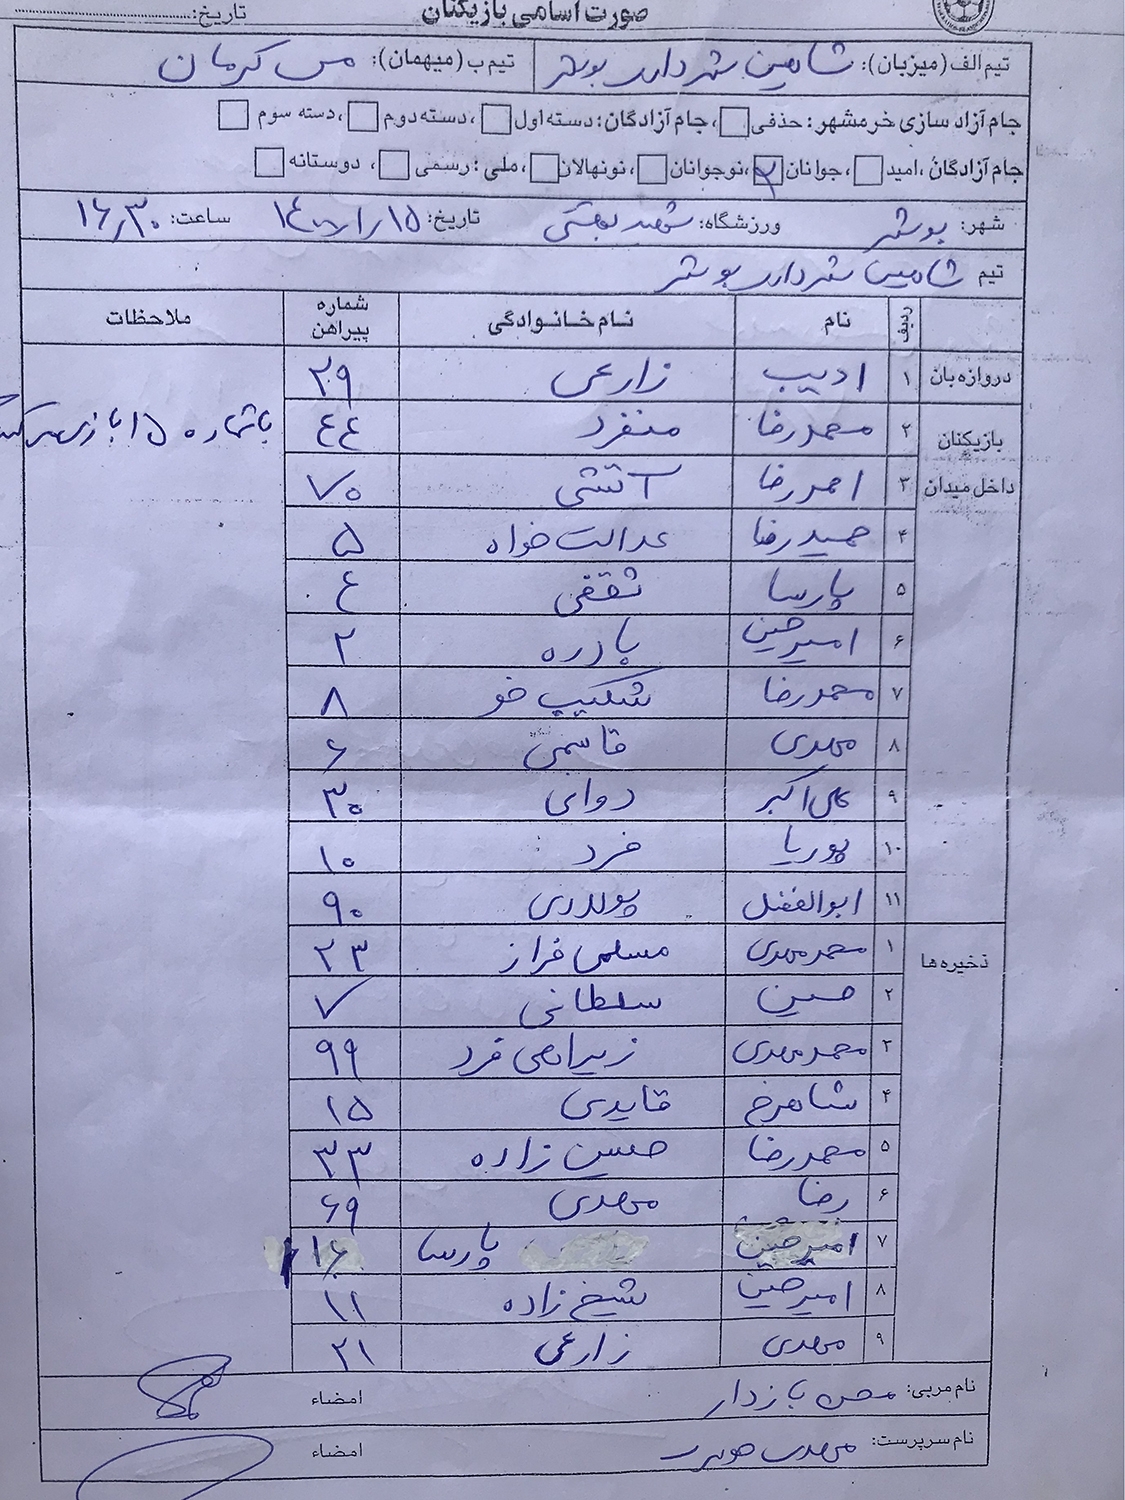 صورت اسامی بازیکنان
تاریخ:
تیم الف (میزبان): شاهین شهرداری بوشهر تیم ب (میهمان): مس کرمان
جام آزاد سازی خرمشهر: حذفی، جام آزادگان: دسته اول، دسته دوم، دسته سوم
جام آزادگان، امید، جوانان، نوجوانان، نونهالان، ملی: رسمی، دوستانه
شهر: بوشهر ورزشگاه: شهید بهشتی تاریخ: ۱۵/۱/۱۴۰۰ ساعت: ۱۶,۳۰
تیم شاهین شهرداری بوشهر
ردیف نام نام خانوادگی شماره پیراهن ملاحظات
دروازه بان ۱ ادیب زارعی ۲۹
بازیکنان ۲ محمدرضا منفرد ۴۴ با شماره ۱۵ بازی می کند
داخل میدان ۳ احمدرضا آتشی ۷۰
۴ حمیدرضا عدالت خواه ۵
۵ پارسا ثقفی ۴
۶ امیرحسین پادره ۲
۷ محمدرضا شکیب خو ۸
۸ مهدی قاسمی ۶
۹ علی اکبر دوای ۳۰
۱۰ پوریا فرد ۱۰
۱۱ ابوالفضل پولادی ۹۰
ذخیره ها ۱ محمدمهدی مسلمی فراز ۲۳
۲ حسین سلطانی ۷
۳ محمدمهدی زیراهی فرد ۹۹
۴ شاهرخ قایدی ۱۵
۵ محمدرضا حسین زاده ۳۳
۶ رضا مهدی ۶۹
۷ امیرحسین پارسا ۱۶
۸ امیرحسین شیخ زاده ۱۱
۹ مهدی زارعی ۲۱
نام مربی: محسن بازدار امضاء
نام سرپرست: مهدی امضاء